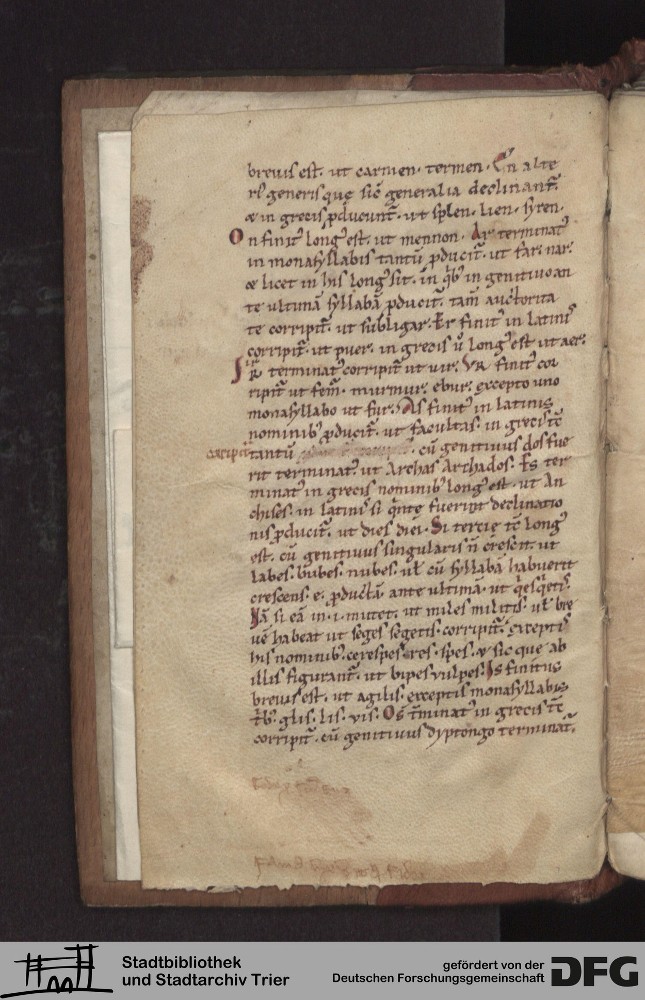 breuis est. ut carmen. termen. En alte
ri generisque sic generalia declinant̄.
& in grecis ꝑducunt̄. ut splen. lien. syren.
On finit' long' est. ut mennon. Ar terminat'
in monasyllabis tantū ꝓducit̄. ut far. nar.
& licet in his long' sit. in q̄b' in genitiuo an
te ultimā syllabā ꝓducit̄. tam̄ auctorita
te corripit̄. ut subligar. Er finit' in latinis
corripit̄. ut puer. in grecis ů long' est ut aer.
Ir terminat' corripit̄ ut uir. Vr finit' cor
ripit̄ ut fem̄. murmur. ebur. excepto uno
monasyllabo ut fur. As finit' in latinis
nominib' ꝓducit̄. ut facultas. in grecis tc̄
corripit̄
tantū cū genitiuus dos fue
rit terminat' ut Archas Archados. Es ter
minat' in grecis nominib' long' est. ut An
chises. in latinis si q̄nte fuerint declinatio
nis ꝓducit̄. ut dies diei. Si tercie tc̄ long'
est. cū genitiuus singularis n̄ crescit. ut
labes. nubes. uł cū syllabā habuerit
crescens. e. ꝓductā. ante ultimā. ut q̄es q̄etis.
Nā si eā in. i. mutet. ut miles militis. uł bre
uē habeat ut seges segetis. corripit̄. exceptis
his nominib'. ceres pes res. spes. & sic que ab
illis figurant̄. ut bipes vulpes. Is finitus
breuis est. ut agilis. exceptis monasyllabis
t̄b'. glis. lis. vis. Os t̄minat' in grecis tc̄
corripit̄. cū genitiuus dyptongo terminat̄.
Stadtbibliothek
und Stadtarchiv Trier
gefördert von der
Deutschen Forschungsgemeinschaft
DFG